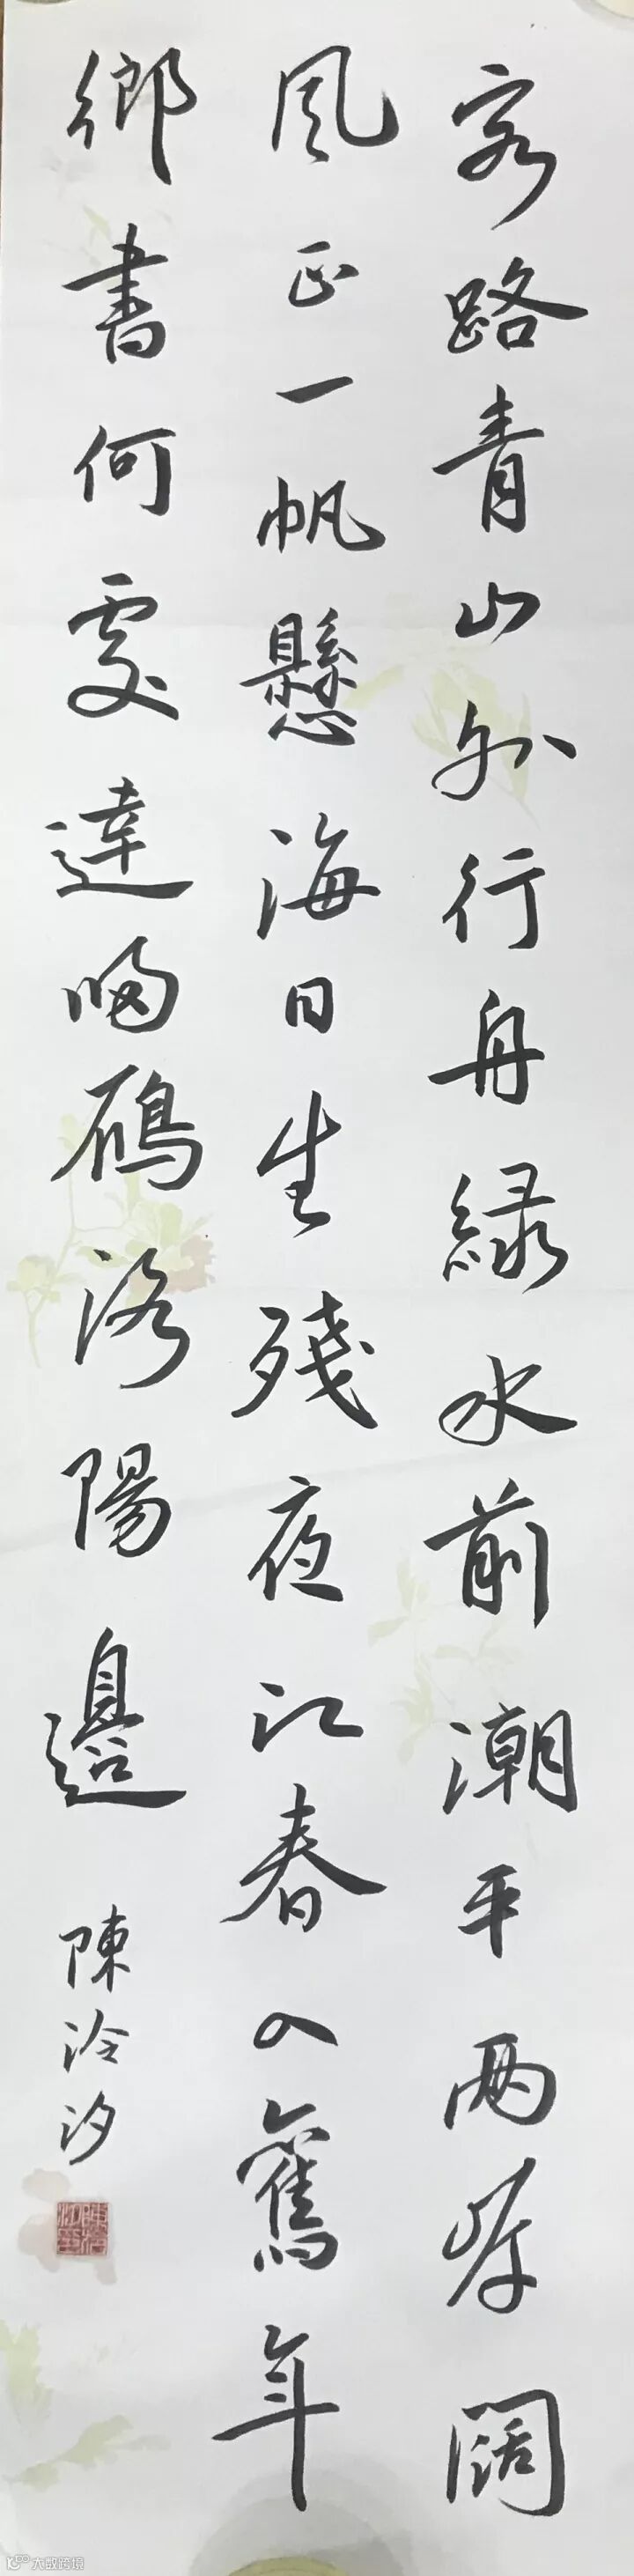 客路青山外行舟綠水前潮平两岸阔
風正一帆懸海日生殘夜江春入舊年
鄉書何處達歸鴈洛陽邊
陳泠汐
大数跨境